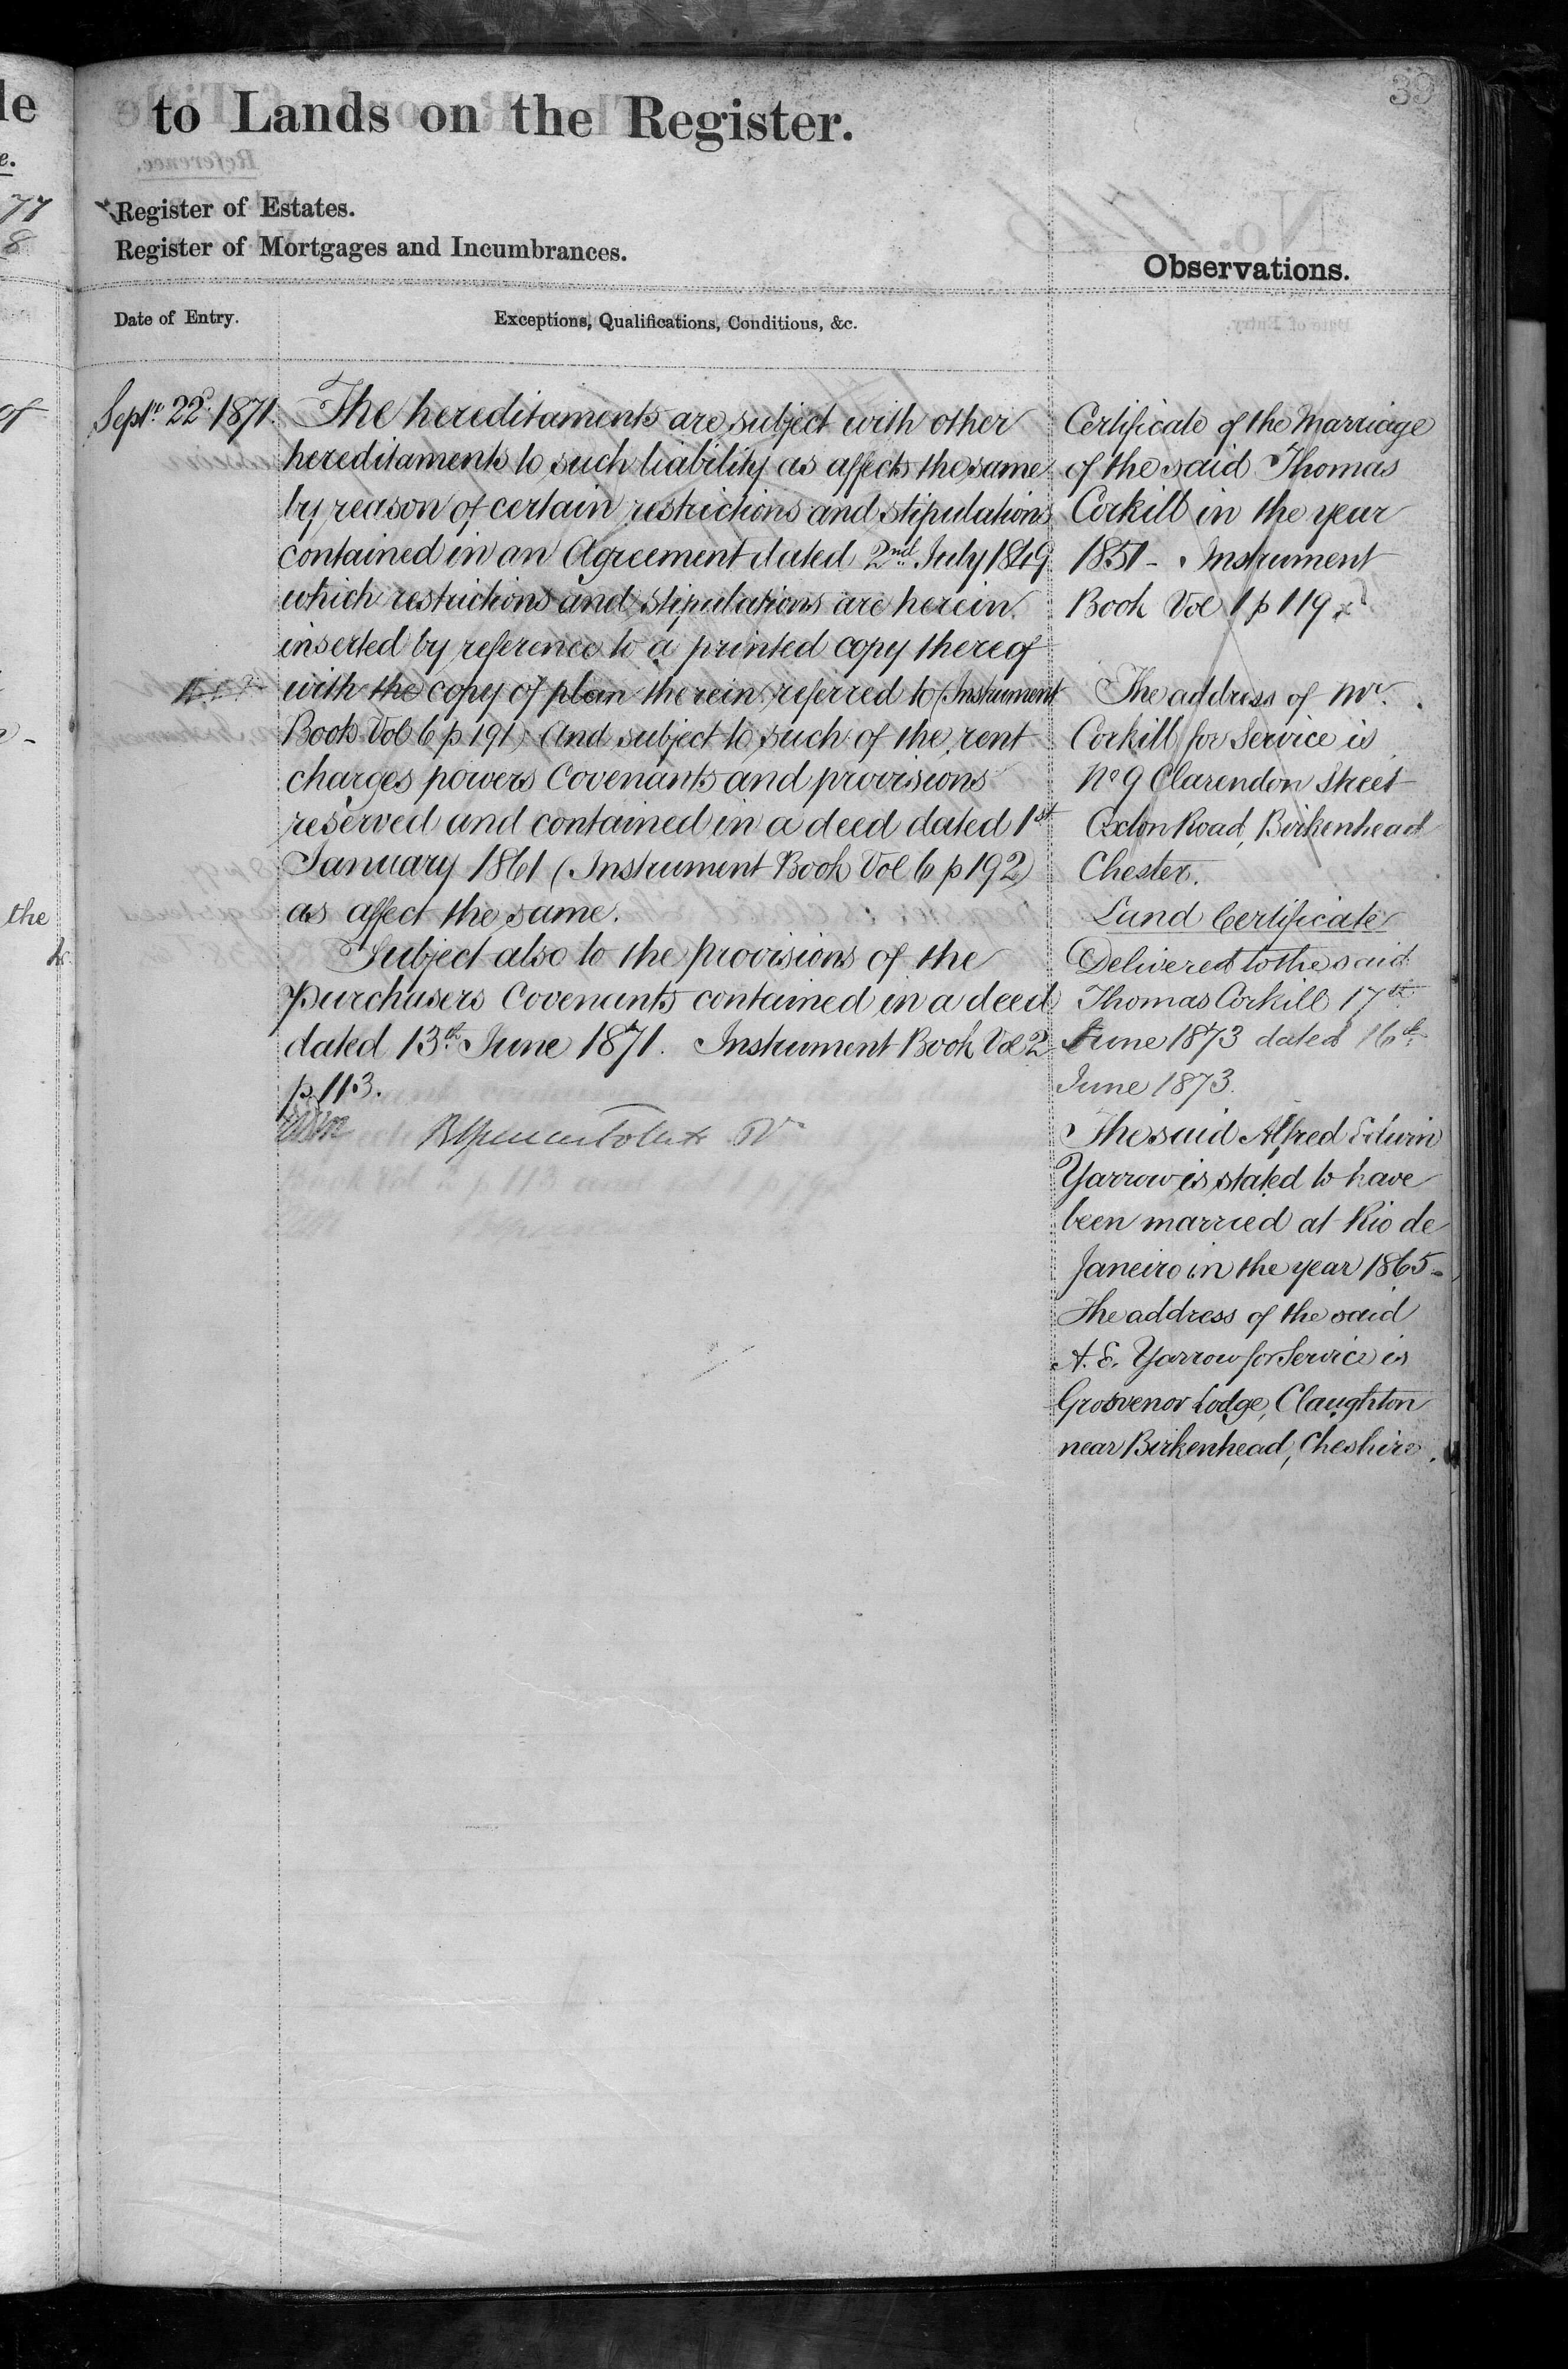 39
to Lands on the Register.
Register of Estates.
Register of Mortgages and Incumbrances.
Observations.
Date of Entry.
Exceptions, Qualifications, Conditions, &c.
Septr. 22d. 1871.
The hereditaments are subject with other
hereditaments to such liability as affects the same
by reason of certain restrictions and stipulations
contained in an Agreement dated 2nd July 1849
which restrictions and stipulations are herein
inserted by reference to a printed copy thereof
with the copy of plan therein referred to (Instrument
Book Vol 6 p 191) And subject to such of the rent
charges powers Covenants and provisions
reserved and contained in a deed dated 1st
January 1861 (Instrument Book Vol 6 p 192)
as affect the same.
Subject also to the provisions of the
Purchasers Covenants contained in a deed
dated 13th June 1871. Instrument Book Vol 2
p 113.
Certificate of the Marriage
of the said Thomas
Corkill in the year
1851 - Instrument
Book Vol 1 p 119
The address of Mr.
Corkill for Service is
No 9 Clarendon Street
Oxton Road, Birkenhead
Chester.
Land Certificate
Delivered to the said
Thomas Corkill 17th
June 1873 dated 16th
June 1873.
The said Alfred Edwin
Yarrow is stated to have
been married at Rio de
Janeiro in the year 1865 -
The address of the said
A. E. Yarrow for Service is
Grosvenor Lodge, Claughton
near Birkenhead, Cheshire.
le
e.
77
8
of
the